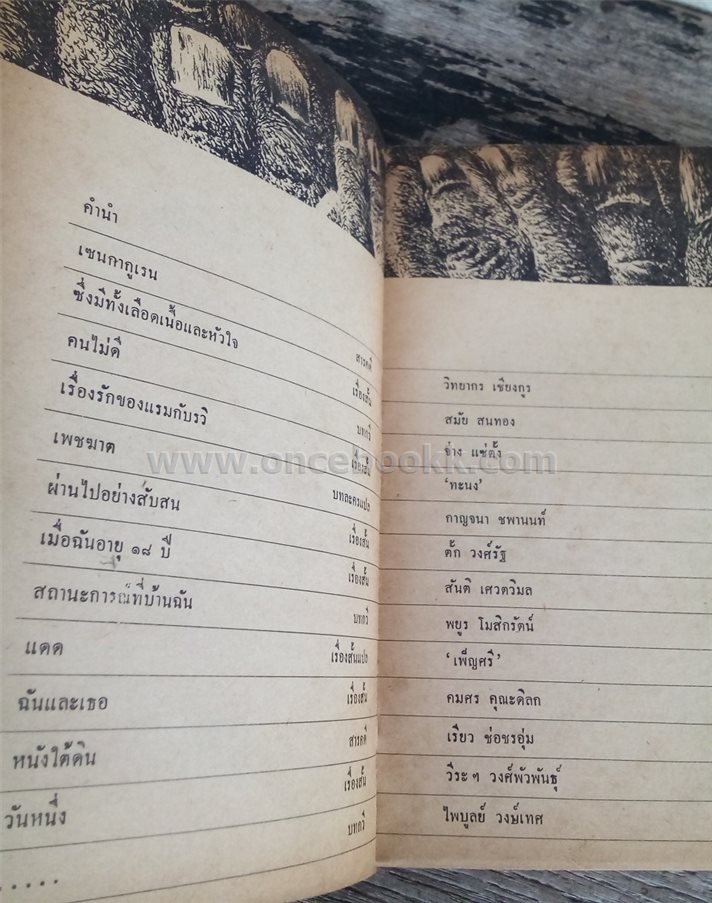 คำนำ
เซนกากูเรน สารคดี
ซึ่งมีทั้งเลือดเนื้อและหัวใจ เรื่องสั้น
คนไม่ดี บทกวี
เรื่องรักของแรมกับรวิ เรื่องสั้น
เพชฆาต บทละครแปล
ผ่านไปอย่างสับสน เรื่องสั้น
เมื่อฉันอายุ ๑๘ ปี เรื่องสั้น
สถานะการณ์ที่บ้านฉัน บทกวี
แดด เรื่องสั้นแปล
ฉันและเธอ เรื่องสั้น
หนังใต้ดิน สารคดี
วันหนึ่ง เรื่องสั้น
..... บทกวี
วิทยากร เชียงกูร
สมัย สนทอง
จ่าง แซ่ตั้ง
'ทะนง'
กาญจนา ชพานนท์
ตั๊ก วงศ์รัฐ
สันติ เศวตวิมล
พยูร โมสิกรัตน์
'เพ็ญศรี'
คมศร คุณะดิลก
เรียว ช่อชรอุ่ม
วีระ ๆ วงศ์พัวพันธุ์
ไพบูลย์ วงษ์เทศ
www.oncebookk.com